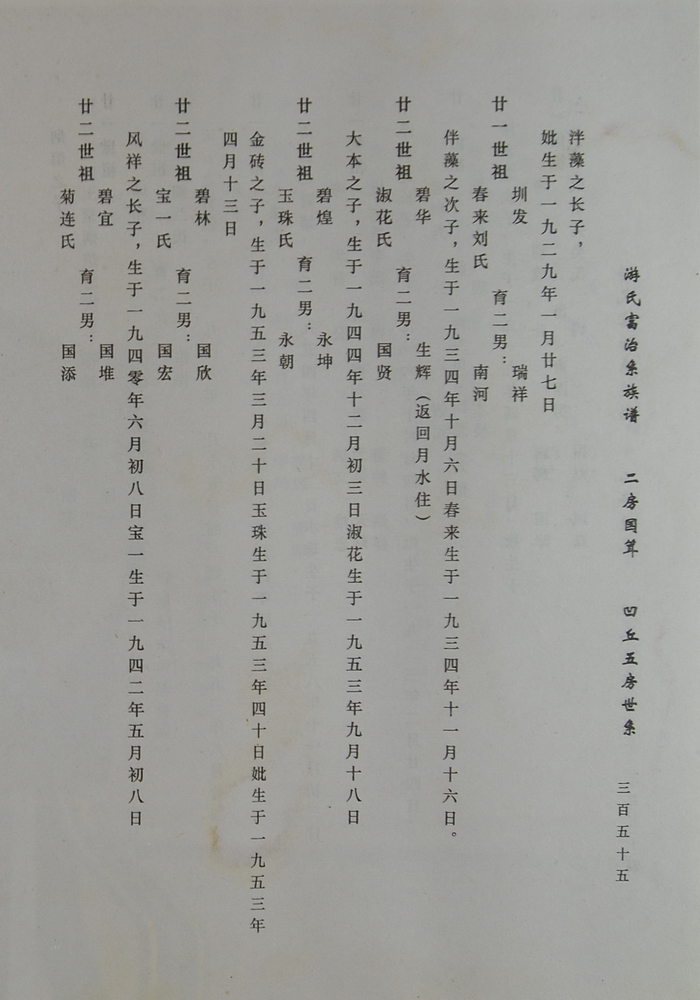 游氏富治系族谱 二房国茸 凹丘五房世系 三百五十五
泮藻之长子，
妣生于一九二九年一月廿七日
圳发 瑞祥
廿一世祖 育二男：
春来刘氏 南河
伴藻之次子，生于一九三四年十月六日春来生于一九三四年十一月十六日。
碧华 生辉（返回月水住）
廿二世祖 育二男：
淑花氏 国贤
大本之子，生于一九四四年十二月初三日淑花生于一九五三年九月十八日
碧煌 永坤
廿二世祖 育二男：
玉珠氏 永朝
金砖之子，生于一九五三年三月二十日玉珠生于一九五三年四十日妣生于一九五三年
四月十三日
碧林 国欣
廿二世祖 育二男：
宝一氏 国宏
风祥之长子，生于一九四零年六月初八日宝一生于一九四二年五月初八日
碧宜 国堆
廿二世祖 育二男：
菊连氏 国添